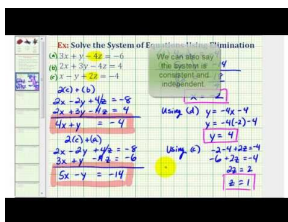 Ex: Solve the System of Equations Using Elimination
(a) 3x + y − 4z = −6
(b) 2x + 3y − 4z = 4
(c) x − y + 2z = −4
We can also say
the system is
consistent and
independent.
2(c) + (b)
2x − 2y + 4z = −8
2x + 3y − 4z = 4
4x + y = −4
2(c) + (a)
2x − 2y + 4z = −8
3x + y − 4z = −6
5x − y = −14
x = −2
Using (d) y = −4x − 4
y = −4(−2) − 4
y = 4
Using (c) −2 − 4 + 2z = −4
−6 + 2z = −4
2z = 2
z = 1